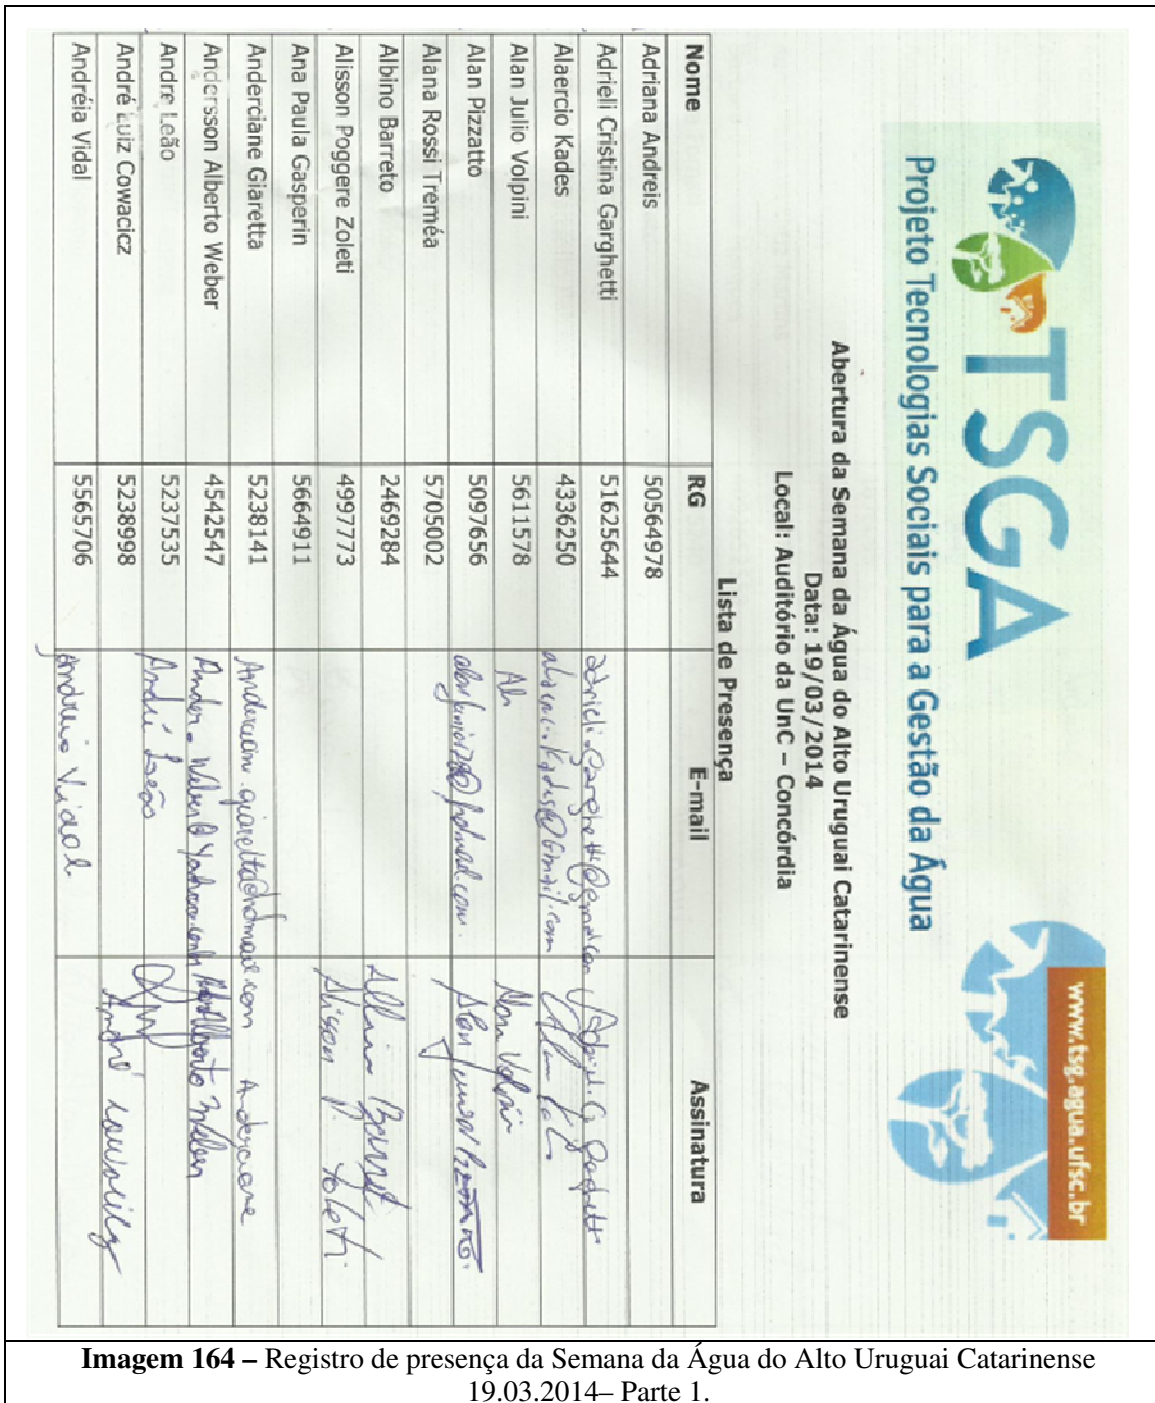 TSGA
www.tsg.agua.ufsc.br
Projeto Tecnologias Sociais para a Gestão da Água
Abertura da Semana da Água do Alto Uruguai Catarinense
Data: 19/03/2014
Local: Auditório da UnC – Concórdia
Lista de Presença
Nome RG E-mail Assinatura
Adriana Andreis 50564978
Adrieli Cristina Garghetti 51625644
Alaercio Kades 4336250
Alan Julio Volpini 5611578 Alan Volpini
Alan Pizzatto 5097656
Alana Rossi Treméa 5705002
Albino Barreto 2469284 Albino
Alisson Poggere Zoleti 4997773 Alisson P. Zoleti
Ana Paula Gasperin 5664911
Anderciane Giaretta 5238141 Anderciane.giaretta@hotmail.com Anderciane
Andersson Alberto Weber 4542547 Alberto Weber
Andre Leão 5237535 André Leão
André Luiz Cowacicz 5238998 André
Andréia Vidal 5565706 Andréia Vidal
Imagem 164 – Registro de presença da Semana da Água do Alto Uruguai Catarinense
19.03.2014– Parte 1.